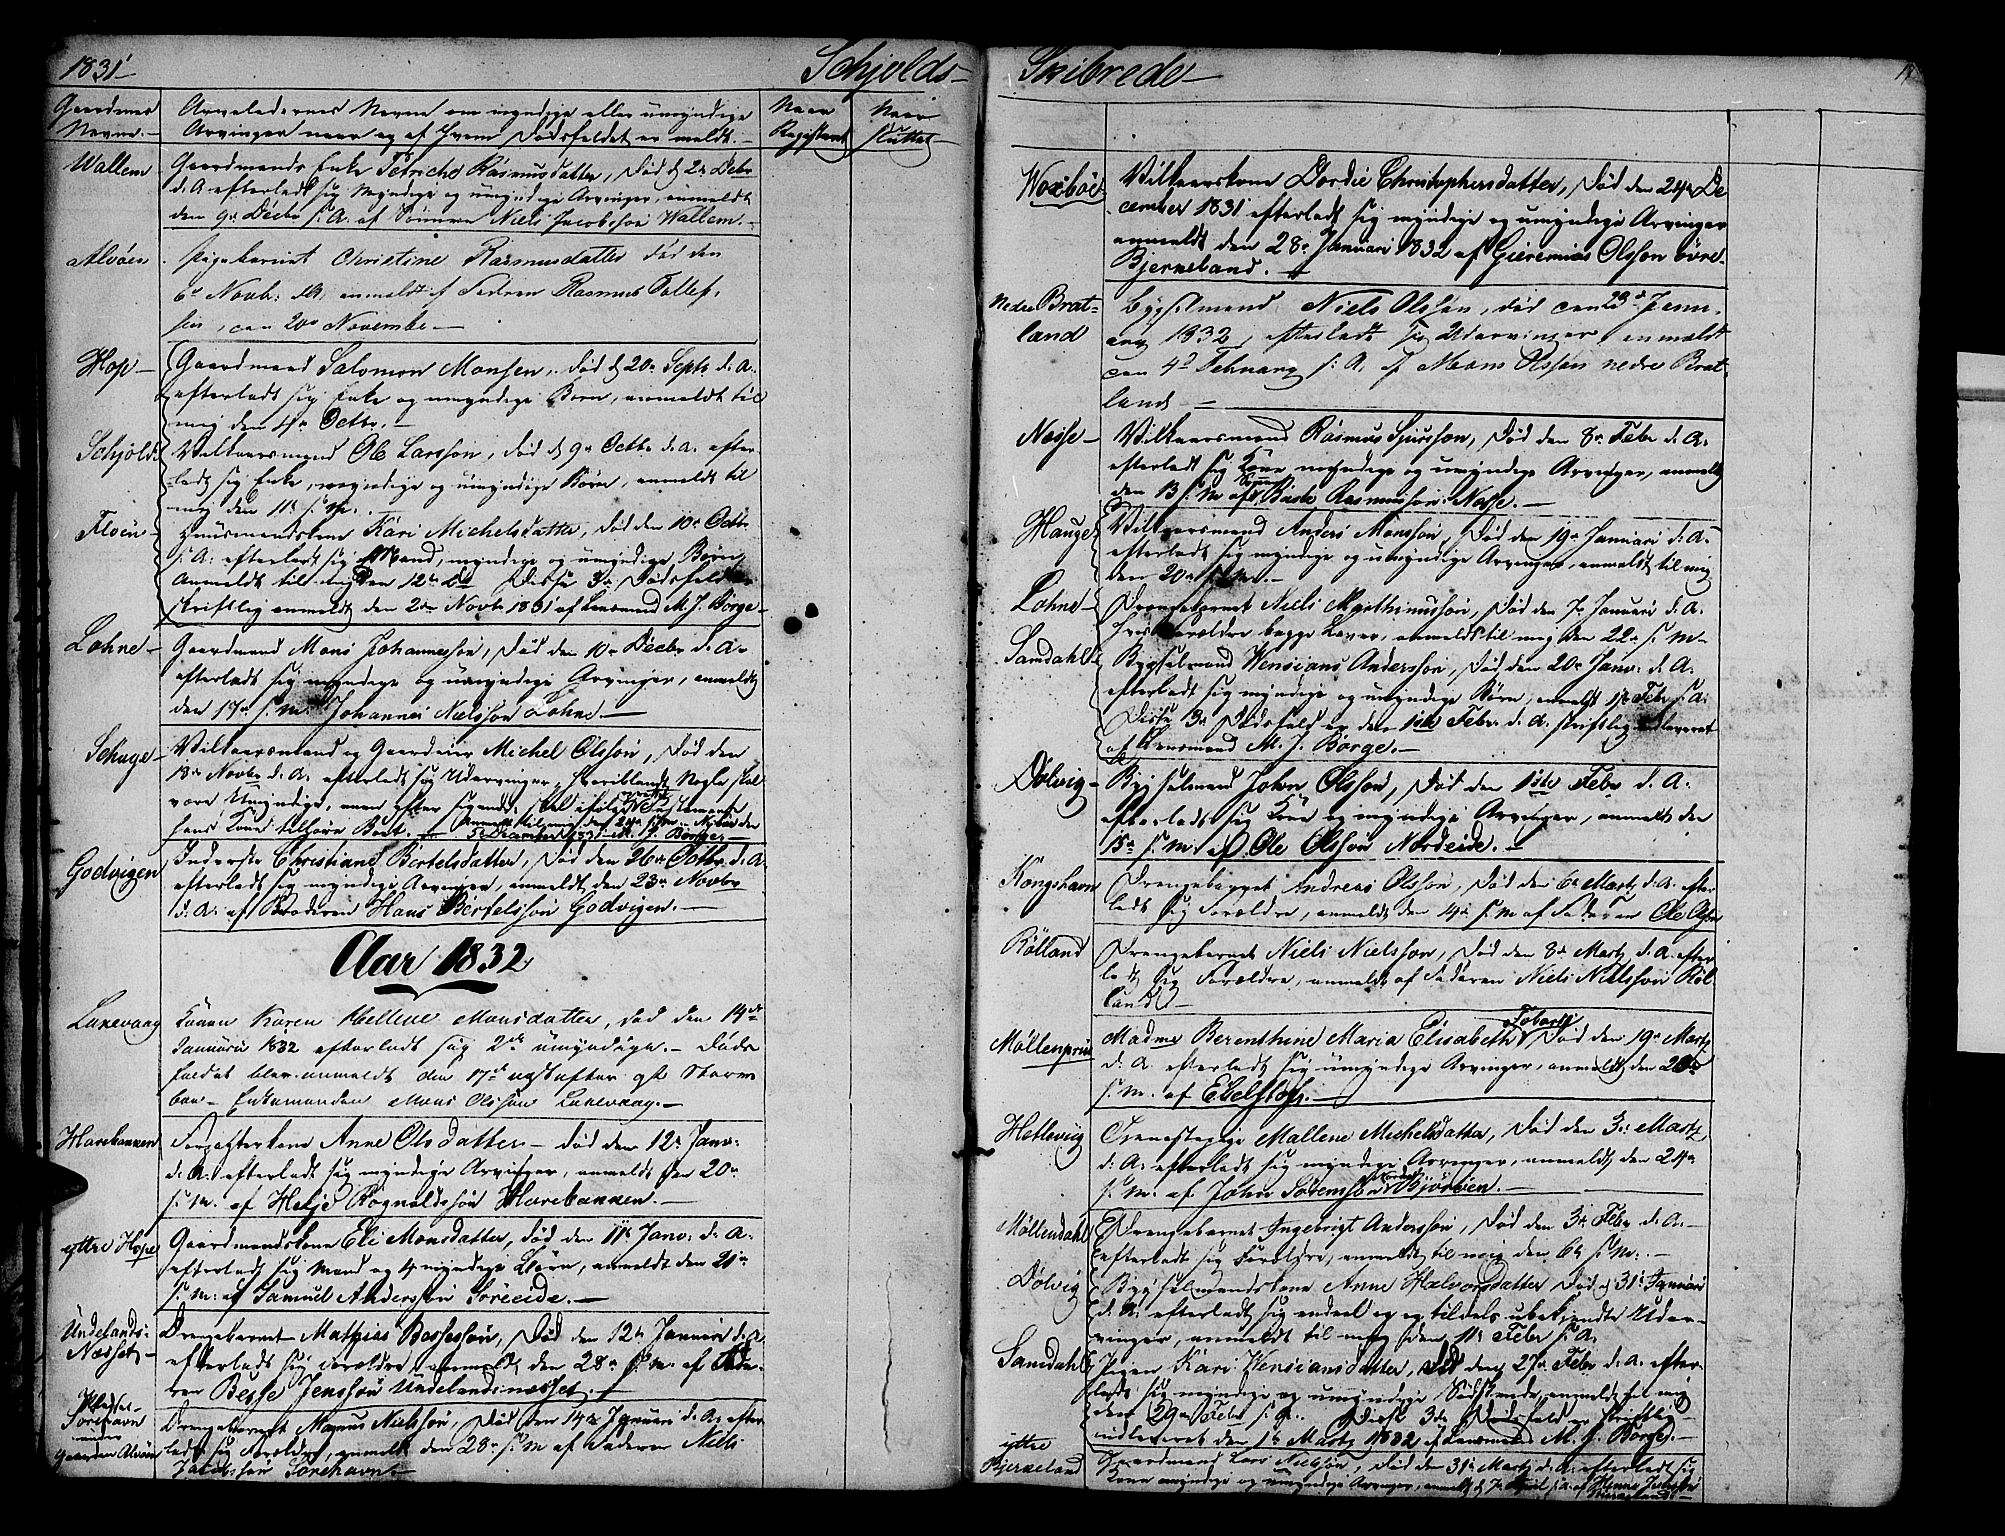 1831
Schjolds-
Gaardenes Navne.
Arveladernes Navne om myndige eller umyndige
Arvinger naar og af hvem Dødsfaldet er meldt.
Naar Registeret
Naar sluttet
Wallem
Gaardmands Enke Rasmusdatter, død d 2n Decbr
d. A. efterladt sig myndige og umyndige Arvinger, anmeldt
den 9n Decbr s. A. af Sønnen Niels Jacobsson Wallem.
Alvøen
Pigebarnet Christine Rasmusdatter død den
6te Novb: d A. anmeldt af Fadren Rasmus Tollef-
sen, den 20de November
Hop
Gaardmand Salomon Monsen, død d 20n Septr d. A.
efterladt sig Enke og umyndige Børn, anmeldt til
mig den 4n Octbr.
Schjold
Vilkaarsmand Ole Larsson, død d 9n Octbr d. A. efter-
ladt sig Enke, myndige og umyndige Børn, anmeldt til
mig den 11n s. M.
Fløen
Huusmandskone Kari Michelsdatter, død den 10n Octbr
s. A. efterladt sig Mand, myndige og umyndige Børn
anmeldt til mig den 12n Do Disse 3n Dødsfald er
skriftlig anmeldt den 2den Novbr 1831 af Lensmand M. J. Børge
Lohne
Gaardmand Mons Johannesson, død den 10n Decbr d. A.
efterladt sig myndige og umyndige Arvinger, anmeldt
den 17n s. M. Johannes Nielsson Lohne
Schage
Vilkaarsmand og Gaardeier Michel Olsson, død den
18n Novbr d. A. efterladt sig Udarvinger, iblandt Nogle skal
være Umyndige, men efter sigende skal
hans Kone tilhøre Boet.
5 December 1831 M. J. Børge
Godvigen
Inderste Christiane Bertelsdatter, død den 26n Octbr d. A.
efterladt sig myndige Arvinger, anmeldt den 23n Novbr
d. A. af Broderen Hans Bertelsson Godvigen.
Aar 1832
Laxevaag
Konen Karen Hellene Monsdatter, død den 14de
Januari 1832 efterladt sig 2de umyndige. Døds
faldet blev anmeldt den 17de næstefter af
Enkemanden Mons Olsson Laxevaag.
Harebakken
Anne Olsdatter død den 12n Janv:
d. A. efterladt sig myndige Arvinger, anmeldt den 20n
s. M. af Helje Rognaldssøn Harebakken.
ytre Hope
Gaardmandskone Eli Monsdatter, død den 11n Janv: d. A.
efterladt sig Mand og 4 myndige Børn, anmeldt den 21n
s. M. af Samuel Andersson Søreide.
Undelands-
Næsset
Drengebarnet Mathias Bessesson, død den 12n Januari d. A.
efterladt sig Forældre, anmeldt den 28n s. M. af Fade-
ren Besse Jensson Undelandsnæsset.
Sørehavn
under
Gaarden Alvøen
Drengebarnet Magnus Nielsson, død den 14n Januari d. A. efter-
ladt sig Forældre, anmeldt den 28n s. M af Faderen Niels
Jacobsson Sørehavn.
Skibrede
Woxboe
Vilkaarskone Dordie Christophersdatter, død den 24n De
cember 1831 efterladt sig myndige og umyndige Arvinger
anmeldt den 28n Januari 1832 af Gieremias Olsson øvre
Bjerneland.
Nedre Brat-
land
Bygselmand Niels Olssen, død den 23d Janu-
ary 1832, efterladt sig Udarvinger, anmeldt
den 4d February s. A. af Mons Olsson nedre Brat-
land
Nesse
Vilkaarsmand Rasmus Sjursson, død den 8n Febr d. A.
efterladt sig Kone myndige og umyndige Arvinger, anmeldt
den 13 s. M af Sønnen Baste Rasmusson Nesse.
Hauge
Vilkaarsmand Anders Monsson, død den 19n Januari d. A.
efterladt sig myndige og umyndige Arvinger, anmeldt til mig
den 20n s. M.
Lohne
Drengebarnet Niels Mathinussøn, død den 7n Januari d. A.
hvis Forældre begge Lever, anmeldt til mig den 22n s. M
Samdahl
Bygselmand Wensians Andersson, død den 20n Janv: d. A.
efterladt sig myndige og umyndige Børn, anmeldt 1n Febr s A.
Disse 3n Dødsfald er den 1ste Febr. d. A. skriftlig indleveret
af Lensmand M. J. Børge.
Dolvig
Bygselmand John Olsson, død den 1ste Febr d. A.
efterladt sig Kone og myndige Arvinger, anmeldt den
13n s. M. af Ole Olsson Nordeide.
Kongshavn
Drengebarnet Andreas Olsson, død den 6n Martz d. A. efter-
ladt sig Forældre, anmeldt den 14n s. M af Faderen Ole Olsen
Rølland
Drengebarnet Niels Nielsson, død den 8n Martz d. A. efter
ladt sig Forældre, anmeldt af Faderen Niels Nielsson Røl
land
Møllenpriis
Madme Berenthine Maria Elisabeth Foborg død den 19n Martz
d. A. efterladt sig umyndige Arvinger, anmeldt den 20n
s. M. af Ebeltoft.
Hetlevig
Tjenestepige Mallene Michelsdatter, død den 3n Martz
d. A. efterladt sig myndige Arvinger, anmeldt den 24n
s. M. af John Sørensson Bjørøen.
Møllendahl
Drengebarnet Ingebrigt Andersson, død den 3n Febr d. A.
efterladt sig Forældre, anmeldt til mig den 6n s. M.
Dolvig
Bygselmandskone Anne Halvorsdatter død d 31n Januari
d. A. efterladt sig endeel og tildels ubekjendte Udar-
vinger, anmeldt til mig den 11n Febr s. A.
Samdahl
Pigen Kari Wensiansdatter, død den 27n Febr d. A. efter-
ladt sig myndige og umyndige Sødskende, anmeldt for mig
den 29n Febr s. A. Disse 3de Dødsfald er skriftlig
indleveret den 1n Martz 1832 af Lensmand M. J. Børge.
ytre
Bjerneland
Gaardmand Lars Nielsson, død den 31n Martz d. A. efterladt sig
Kone myndige og umyndige Arvinger, anmeldt d 7n April s. A. af